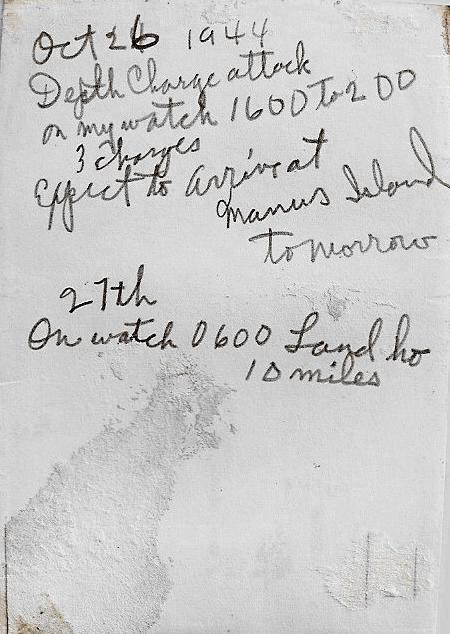 Oct 26 1944
Depth Charge attack
on my watch 1600 to 200
3 charges
Expect to Arrive at
Manus Island
tomorrow
27th
On watch 0600 Land ho
10 miles